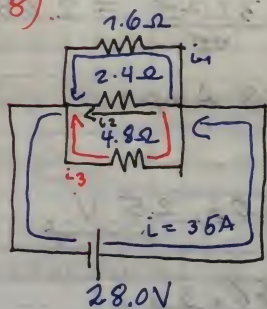 8)
1.6 Ω
i1
2.4 Ω
i2
4.8 Ω
i3
i = 35A
28.0V